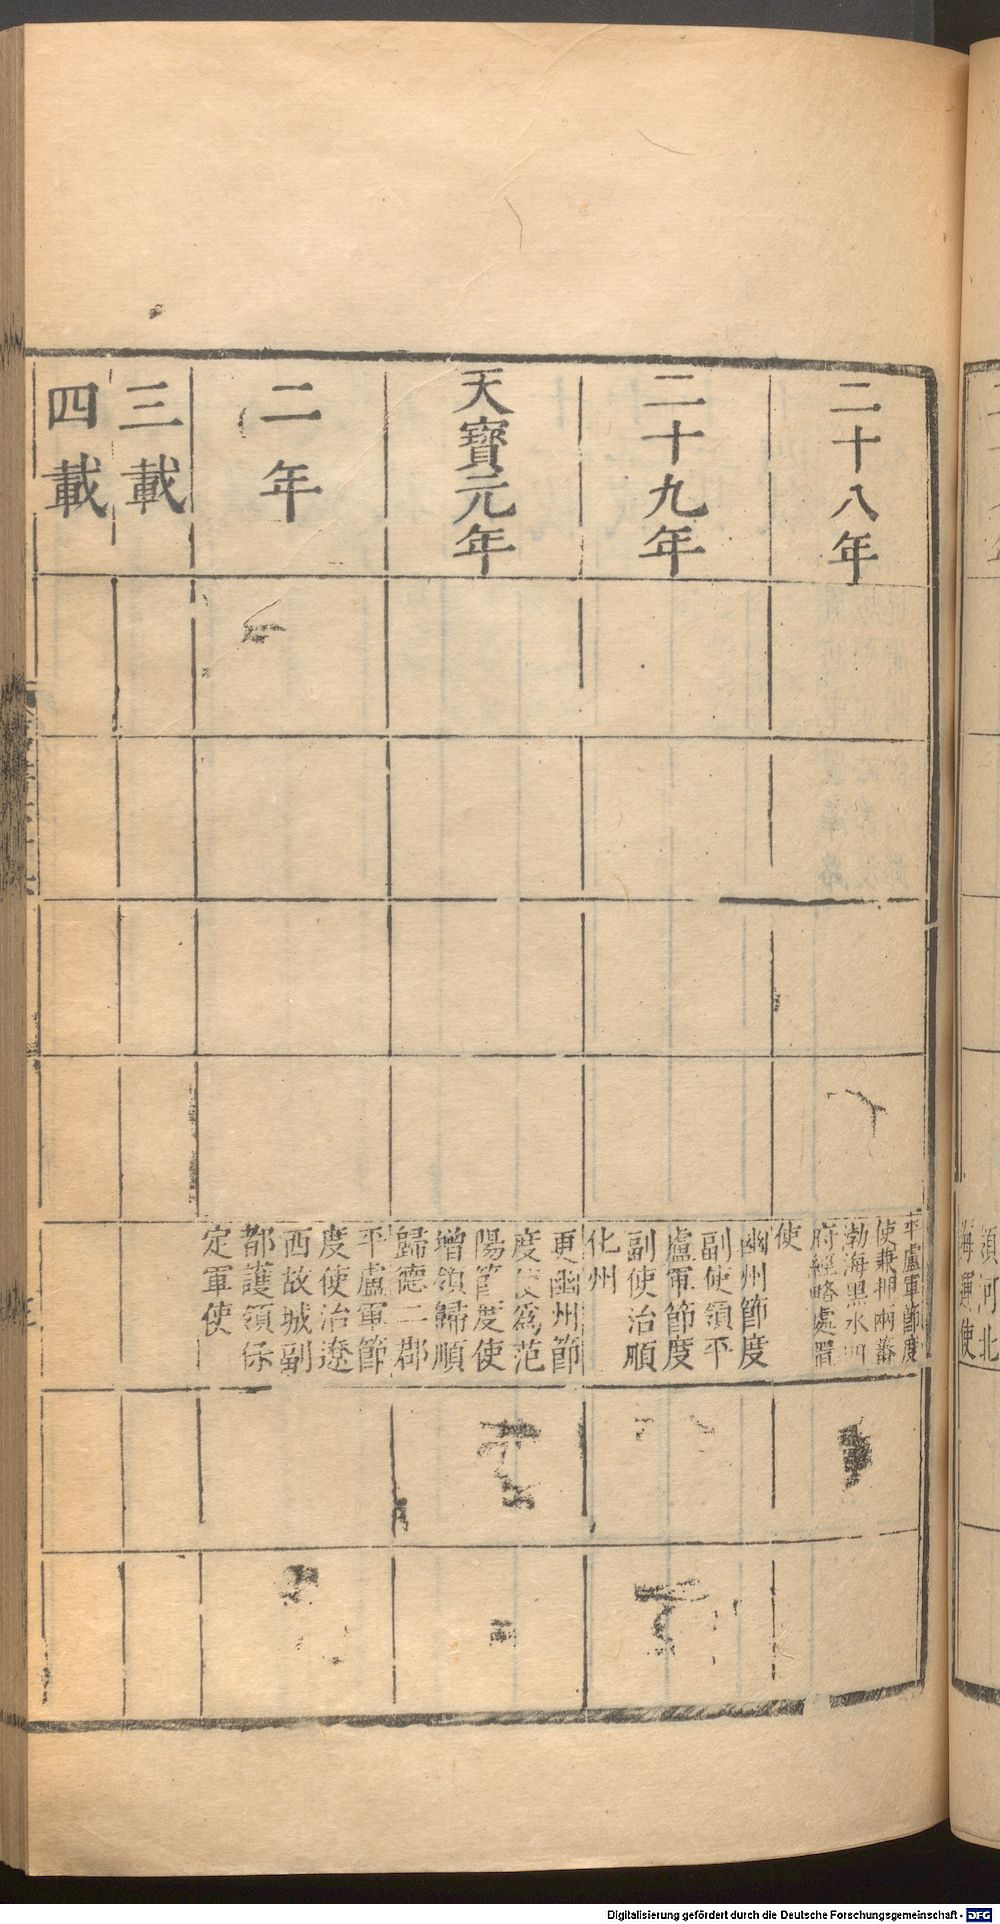 二十八年
平盧軍節度
使兼押兩蕃
渤海黑水四
府經略處置
使
二十九年
幽州節度
副使領平
盧軍節度
副使治順
化州
天寶元年
更幽州節
度使爲范
陽節度使
增領歸順
歸德二郡
二年
平盧軍節
度使治遼
西故城副
都護領保
定軍使
三載
四載
領河北
海運使
Digitalisierung gefördert durch die Deutsche Forschungsgemeinschaft - DFG